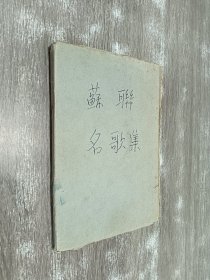 蘇聯
名歌集